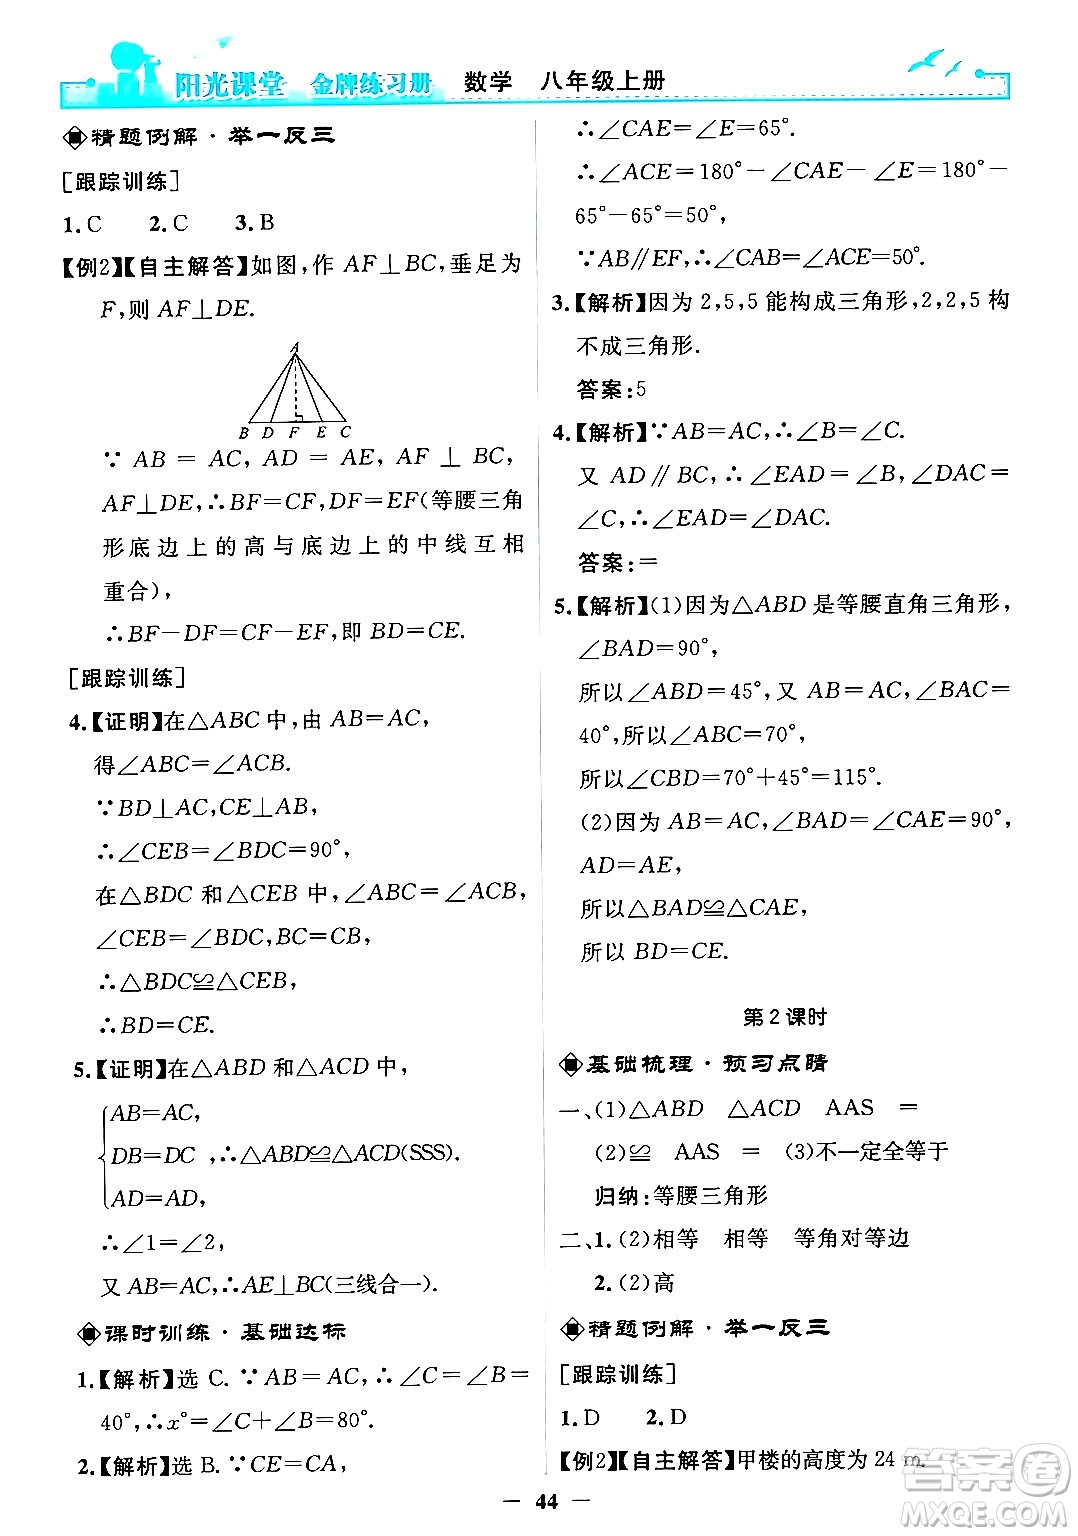 阳光课堂 金牌练习册 数学 八年级上册
精题例解·举一反三
[跟踪训练]
1.C 2.C 3.B
【例2】【自主解答】如图,作 AF⊥BC,垂足为
F,则 AF⊥DE.
A
B D F E C
∵ AB = AC, AD = AE, AF ⊥ BC,
AF⊥DE,∴BF=CF,DF=EF(等腰三角
形底边上的高与底边上的中线互相
重合),
∴BF-DF=CF-EF,即 BD=CE.
[跟踪训练]
4.【证明】在△ABC 中,由 AB=AC,
得∠ABC=∠ACB.
∵BD⊥AC,CE⊥AB,
∴∠CEB=∠BDC=90°,
在△BDC 和△CEB 中,∠ABC=∠ACB,
∠CEB=∠BDC,BC=CB,
∴△BDC≌△CEB,
∴BD=CE.
5.【证明】在△ABD 和△ACD 中,
AB=AC,
DB=DC ,∴△ABD≌△ACD(SSS).
AD=AD,
∴∠1=∠2,
又 AB=AC,∴AE⊥BC(三线合一).
课时训练·基础达标
1.【解析】选 C.∵AB=AC,∴∠C=∠B=
40°,∴x°=∠C+∠B=80°.
2.【解析】选 B.∵CE=CA,
∴∠CAE=∠E=65°.
∴∠ACE=180°-∠CAE-∠E=180°-
65°-65°=50°,
∵AB∥EF,∴∠CAB=∠ACE=50°.
3.【解析】因为 2,5,5 能构成三角形,2,2,5 构
不成三角形.
答案:5
4.【解析】∵AB=AC,∴∠B=∠C.
又 AD∥BC,∴∠EAD=∠B,∠DAC=
∠C,∴∠EAD=∠DAC.
答案:=
5.【解析】(1)因为△ABD 是等腰直角三角形,
∠BAD=90°,
所以∠ABD=45°,又 AB=AC,∠BAC=
40°,所以∠ABC=70°,
所以∠CBD=70°+45°=115°.
(2)因为 AB=AC,∠BAD=∠CAE=90°,
AD=AE,
所以△BAD≌△CAE,
所以 BD=CE.
第 2 课时
基础梳理·预习点睛
一、(1)△ABD △ACD AAS =
(2)≌ AAS = (3)不一定全等于
归纳:等腰三角形
二、1.(2)相等 相等 等角对等边
2.(2)高
精题例解·举一反三
[跟踪训练]
1.D 2.D
【例2】【自主解答】甲楼的高度为 24 m.
— 44 —
答案圈
MXQE.COM